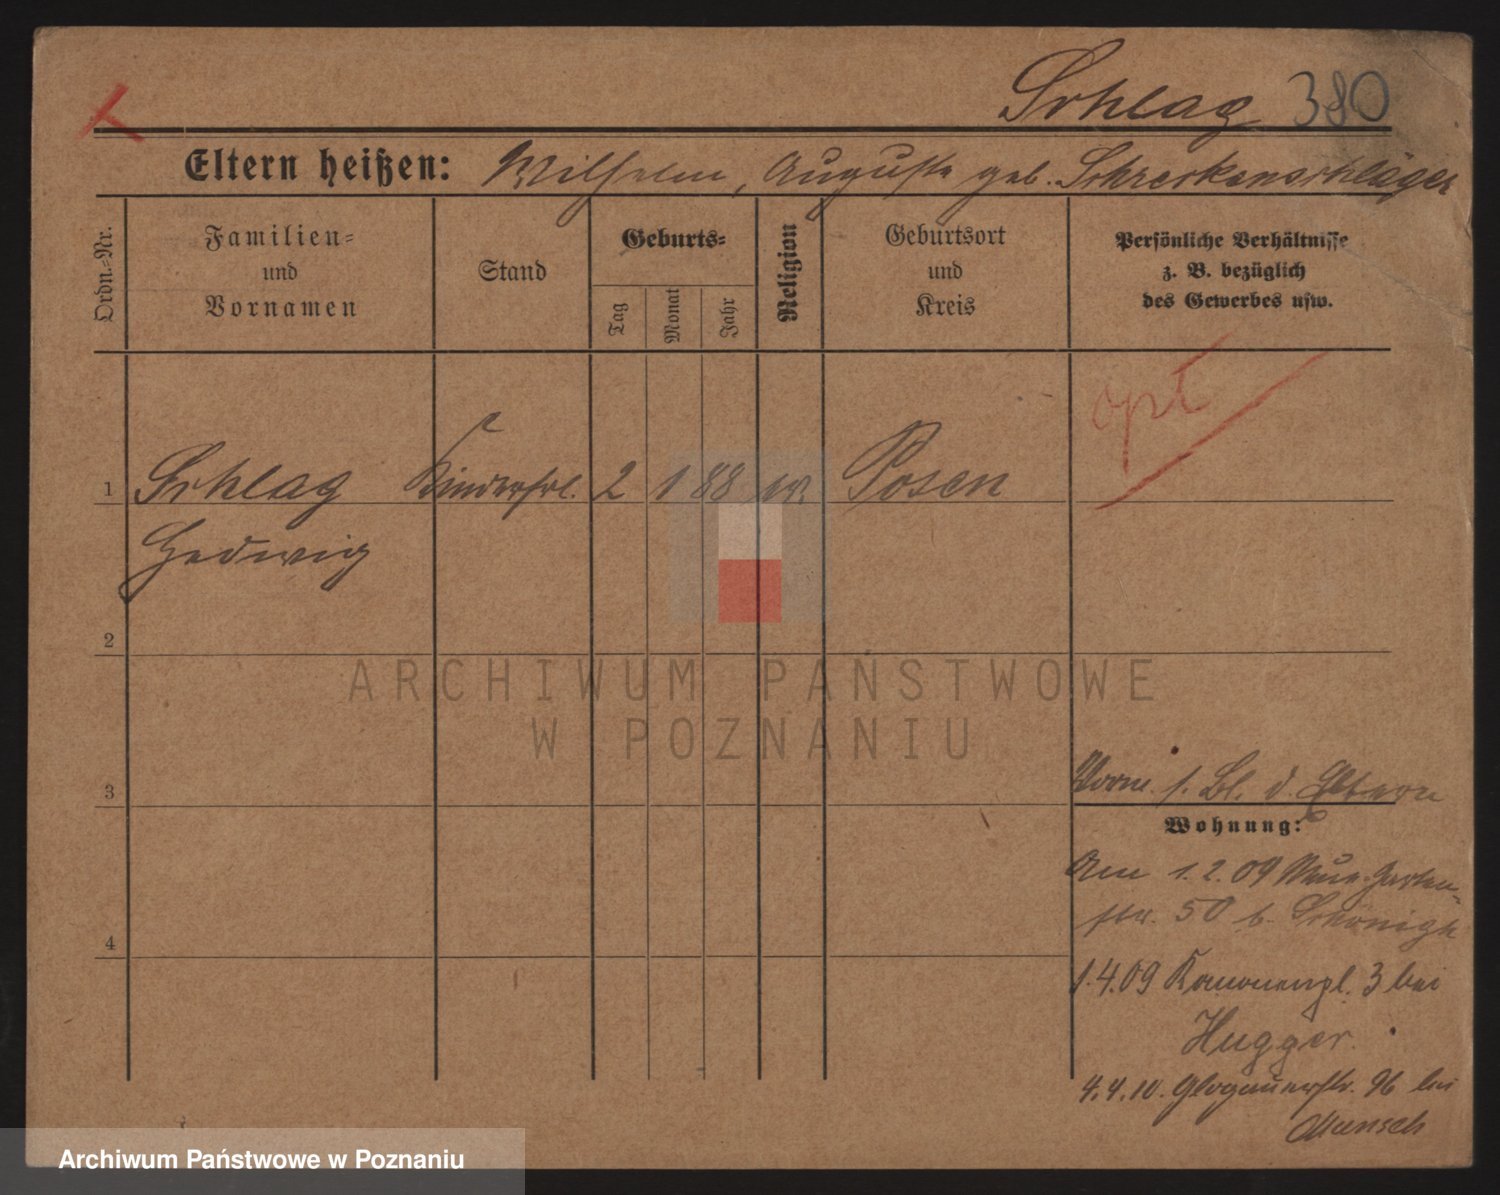 Schlag 380
Eltern heißen: Wilhelm, Auguste geb. Schreckenschläger
Ordn.-Nr.
Familien-
und
Vornamen
Stand
Geburts-
Tag
Monat
Jahr
Religion
Geburtsort
und
Kreis
Persönliche Verhältnisse
z. B. bezüglich
des Gewerbes usw.
opt
1 Schlag Kinderfrl. 2 1 88 Posen
Hedwig
2
3
s. Bl. d. Eltern
Wohnung:
Am 1.2.09 Neue Garten-
str. 50 b.
4
1.4.09 Kanonenpl. 3 bei
Hugger.
4.4.10. Glogauerstr. 96 bei
Munsch
ARCHIWUM PAŃSTWOWE
W POZNANIU
Archiwum Państwowe w Poznaniu